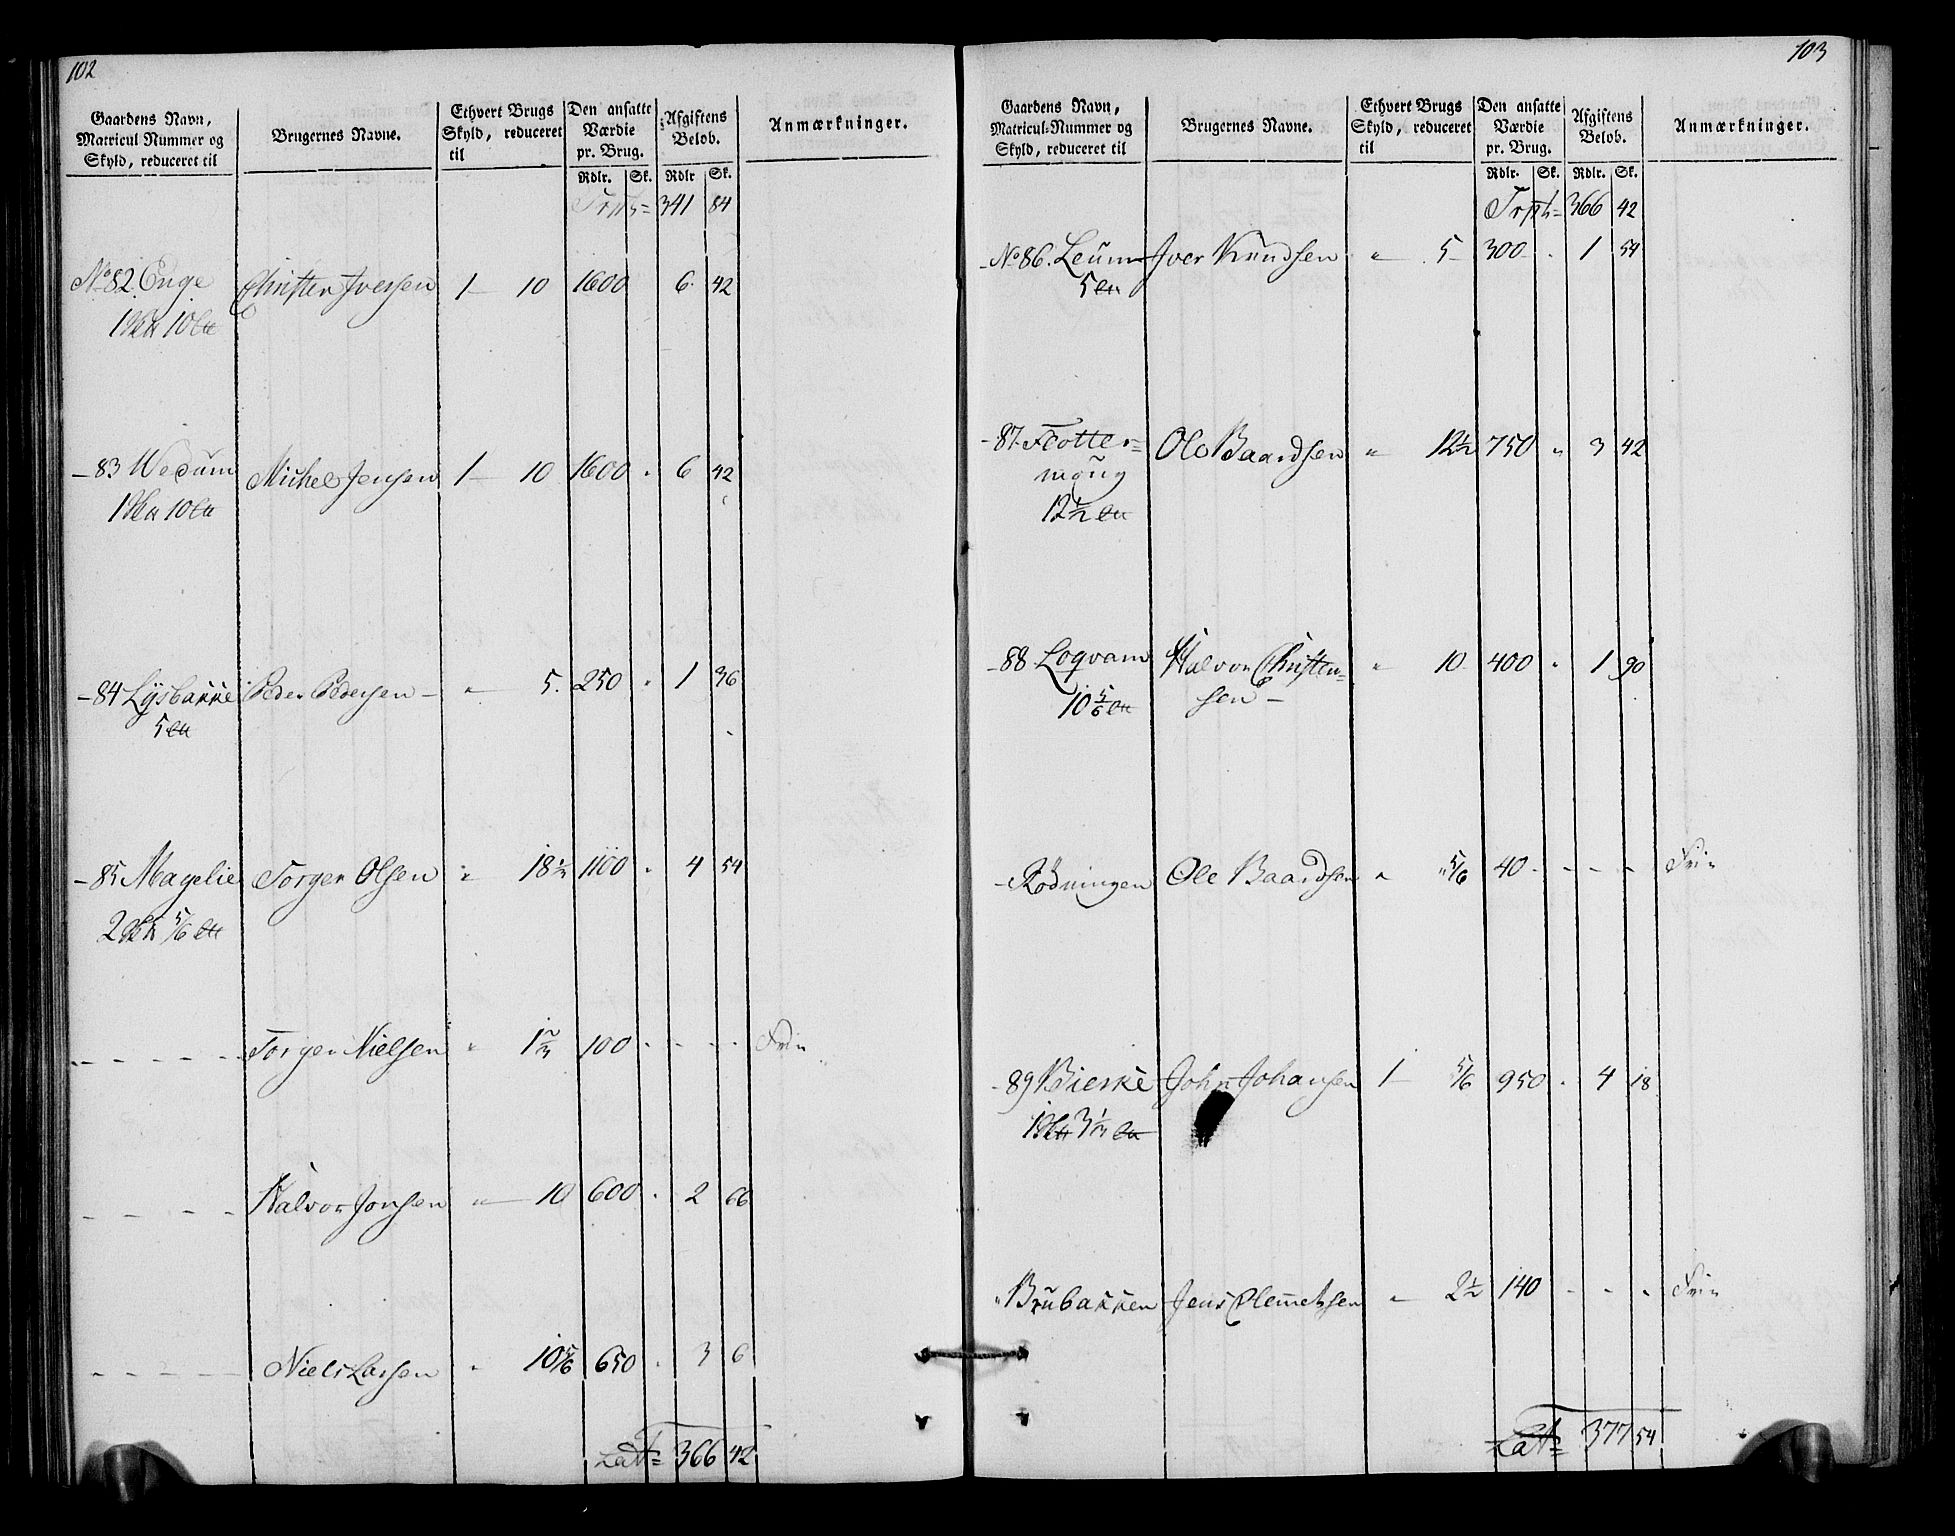 102
Gaardens Navn, Matricul Nummer og Skyld, reduceret til | Brugernes Navne. | Ethvert Brugs Skyld, reduceret til | Den ansatte Værdie pr. Brug. | Afgiftens Beløb. | Anmærkninger.
Rdlr. Sk. Rdlr Sk.
Trpt= 341 84
No 82. Enge Christen Iversen 1 — 10 1600 6. 42
10
– 83 Wedum Michel Jensen 1 — 10 1600 " 6 42
10
– 84 Lysbakke Peder Pedersen – " 5. 250 " 1 36
5
– 85 Magelie Torger Olsen " 18 1/3 1100 " 4 54
2 5/6
– – – – Torger Nielsen " 1 2/3 100 " – – " Frie
– – – – Halvor Jonsen " — 10 600 " 2 66
– – – – Niels Larsen " 10 5/6 650 " 3 6
Lat= 366 42
103
Gaardens Navn, Matricul-Nummer og Skyld, reduceret til | Brugernes Navne. | Ethvert Brugs Skyld, reduceret til | Den ansatte Værdie pr. Brug. | Afgiftens Beløb. | Anmærkninger.
Rdlr. Sk. Rdlr. Sk.
Trpt= 366 42
– No 86. Leum Iver Knudsen " 5 – 300 – " 1 54
5
– 87. Flotter= Ole Baardsen " 12 1/2 750 " 3 42
moug
12 1/2
– 88 Loqvam Halvor Christen=
10 400 " 1 90
10 5/6 sen –
– Rødningen Ole Baardsen " " 5/6 40 – – – – Frie
– 89 Bierke John Johansen 1 — 5/6 950 " 4 18
3 1/3
" Brubakken Jens Clemetsen " 2 1/2 140 – – " Frie
Lat= 377 54